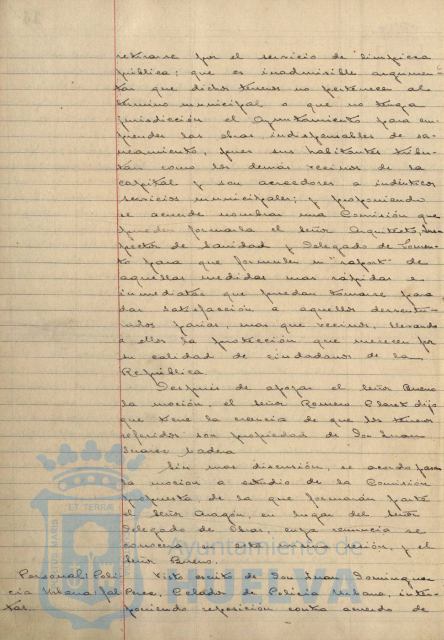 retirarse por el servicio de limpieza
pública; que es inadmisible argumen-
tar que dichos terrenos no pertenecen al
término municipal o que no tenga
jurisdicción el Ayuntamiento para em-
prender las obras indispensables de sa-
neamiento, pues sus habitantes tribu-
tan como los demás vecinos de la
capital y son acreedores a idénticos
servicios municipales; y proponiendo
se acuerde nombrar una Comisión que
pueden formarla el Señor Arquitecto, Ins-
pector de Sanidad y Delegado de Fomen-
to para que formulen un "raport" de
aquellas medidas mas rápidas e
inmediatas que puedan tomarse para
dar satisfacción a aquellos desventu-
rados parias, mas que vecinos, llevando
a ellos la protección que merecen por
su calidad de ciudadanos de la
República.
Después de apoyar el Señor Bueno
la moción, el Señor Romero Claret dijo
que tiene la creencia de que los terrenos
referidos son propiedad de Don Juan
Suarez
Sin mas discusión, se acordó pasar
la moción a estudio de la Comisión
propuesta, de la que formarán parte
el Señor Aragón, en lugar del Señor
Delegado de Obras, cuya renuncia se
conocerá en esta misma sesión, y el
Señor Bueno.
Personal: Poli- Visto escrito de Don Juan Dominguez
cia Urbana: Perez, Celador de Policia Urbana, inter-
poniendo reposición contra acuerdo de
ET TERRÆ
Ayuntamiento de
HUELVA